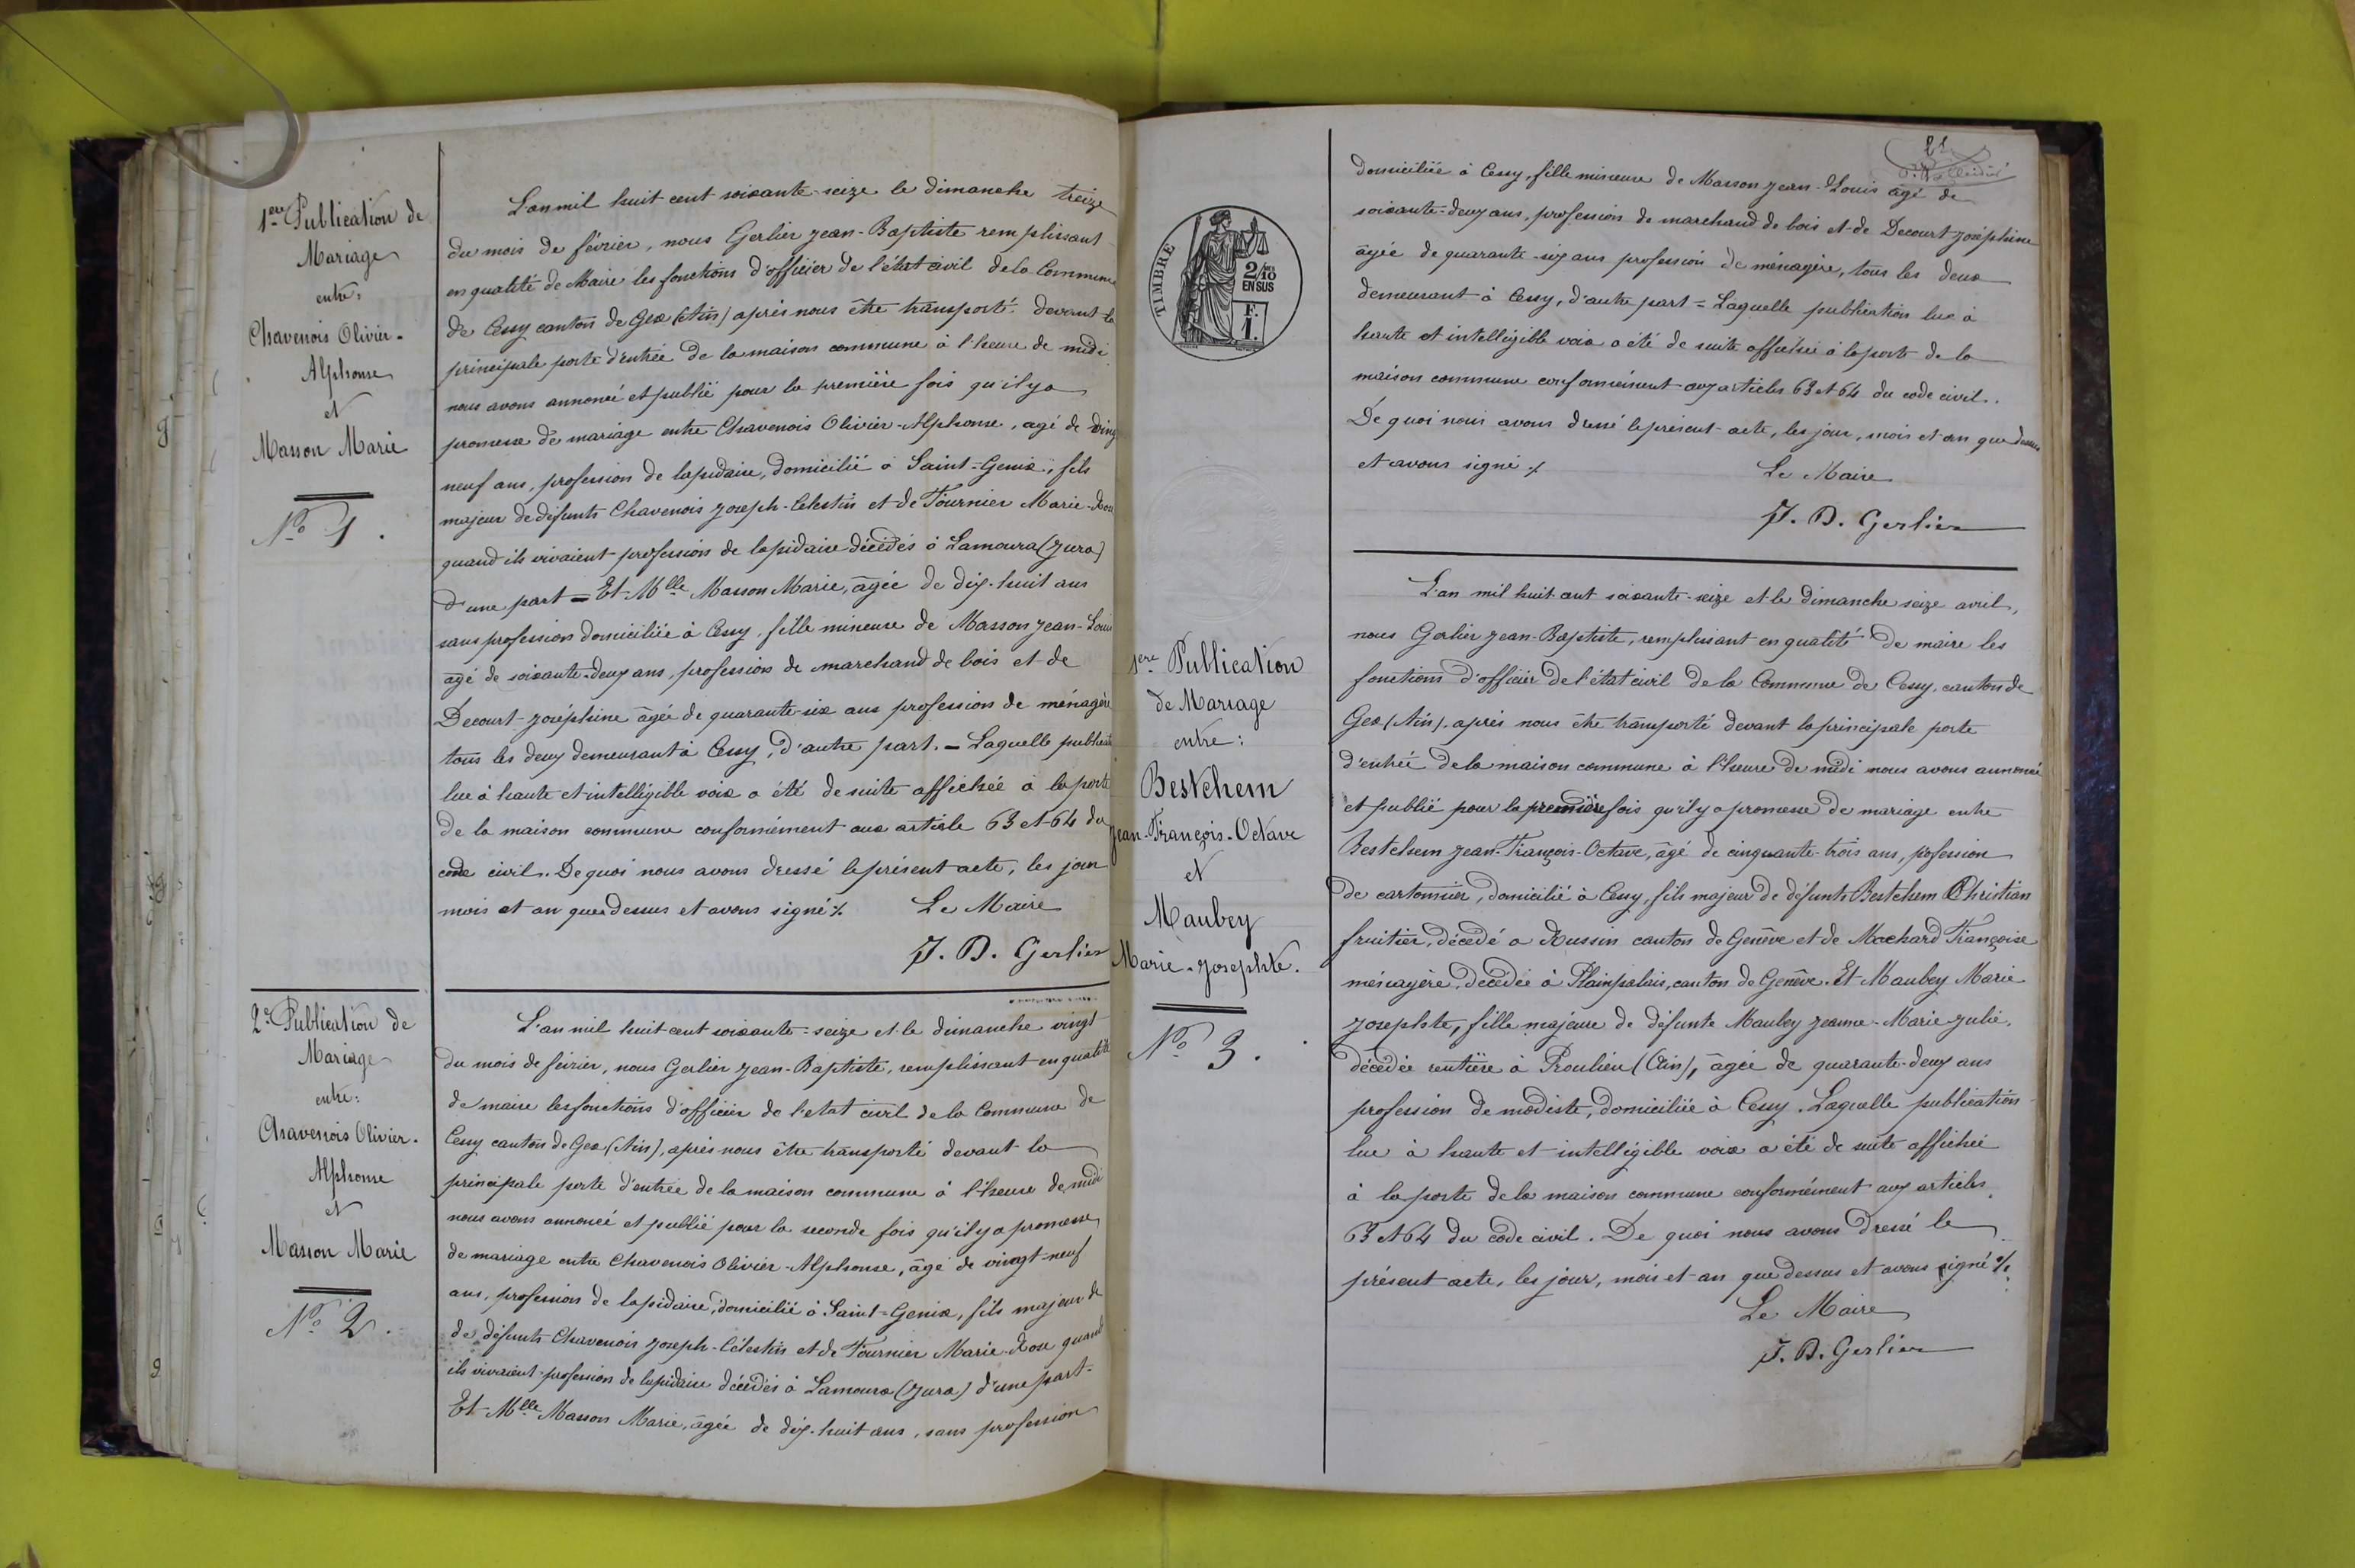 1ère Publication de
Mariage
entre:
Chavenois Olivier-
Alphonse
et
Masson Marie
No 1.
L'an mil huit cent soixante-seize le dimanche treize
du mois de février, nous Gerlier Jean-Baptiste remplissant
en qualité de Maire les fonctions d'officier de l'état civil de la Commune
de Cessy canton de Gex (Ain) après nous être transporté devant la
principale porte d'entrée de la maison commune à l'heure de midi
nous avons annoncé et publié pour la première fois qu'il y a
promesse de mariage entre Chavenois Olivier-Alphonse, agé de ving
neuf ans, profession de lapidaire, domicilié à Saint-Genix, fils
majeur de défunts Chavenois Joseph-Celestin et de Fournier Marie-Rose
quand ils vivaient profession de lapidaire décédés à Lamoura (Jura)
d'une part = Et Mlle Masson Marie, âgée de dix-huit ans
sans profession domiciliée à Cessy, fille mineure de Masson Jean-Louis
âgé de soixante-deux ans, profession de marchand de bois et de
Decourt Joséphine âgée de quarante-six ans profession de ménagère
tous les deux demeurant à Cessy, d'autre part. = Laquelle publication
lue à haute et intelligible voix a été de suite affichée à la porte
de la maison commune conformément aux article 63 et 64 du
code civil. De quoi nous avons dressé le présent acte, les jour
mois et an que dessus et avons signé ./.
Le Maire
J. B. Gerlier
2e Publication de
Mariage
entre:
Chavenois Olivier.
Alphonse
et
Masson Marie
No 2.
L'an mil huit cent soixante-seize et le dimanche vingt
du mois de février, nous Gerlier Jean-Baptiste, remplissant en qualité
de maire les fonctions d'officier de l'etat civil de la Commune de
Cessy canton de Gex (Ain), après nous être transporté devant la
principale porte d'entrée de la maison commune à l'heure de midi
nous avons annoncé et publié pour la seconde fois qu'il y a promesse
de mariage entre Chavenois Olivier-Alphonse, âgé de vingt-neuf
ans, profession de lapidaire, domicilié à Saint-Genix, fils majeur de
de défunts Chavenois Joseph-Célestin et de Fournier Marie-Rose quand
ils vivaient profession de lapidaire décédés à Lamoura (Jura) d'une part-
Et Mlle Masson Marie, âgée de dix-huit ans, sans profession
21
domiciliée à Cessy, fille mineure de Masson Jean-Louis âgé de
soixante-deux ans, profession de marchand de bois et de Decourt Joséphine
âgée de quarante-six ans profession de ménagère, tous les deux
demeurant à Cessy, d'autre part = Laquelle publication lue à
haute et intelligible voix a été de suite affichée à la porte de la
maison commune conformément aux articles 63 et 64 du code civil.
De quoi nous avons dressé le présent acte, les jour, mois et an que dessus
et avons signé ./.
Le Maire
J. B. Gerlier
TIMBRE
2/10 MES
EN SUS
F.
1.
1ère Publication
de Mariage
entre:
Bestchem
Jean-François-Octave
et
Maubey
Marie-Josephte.
No 3.
L'an mil huit cent soixante-seize et le dimanche seize avril,
nous Gerlier Jean-Baptiste, remplissant en qualité de maire les
fonctions d'officier de l'état civil de la Commune de Cessy, canton de
Gex (Ain), après nous être transporté devant la principale porte
d'entrée de la maison commune à l'heure de midi nous avons annoncé
et publié pour la première fois qu'il y a promesse de mariage entre
Bestchem Jean-François-Octave, âgé de cinquante-trois ans, pofession
de cartonnier, domicilié à Cessy, fils majeur de défunts Bestchem Christian
fruitier, décédé a Russin canton de Genève et de Mochard Françoise
ménagère, décédée à Plainpalais, canton de Genève. Et Maubey Marie
Josephte, fille majeure de défunte Maubey Jeanne-Marie Julie,
décédée rentière à Proulieu (Ain), âgée de quarante-deux ans
profession de modiste, domiciliée à Cessy. Laquelle publication
lue à haute et intelligible voix a été de suite affichée
à la porte de la maison commune conformément aux articles
63 et 64 du code civil. De quoi nous avons dressé le
présent acte, les jour, mois et an que dessus et avons signé ./.
Le Maire
J. B. Gerlier